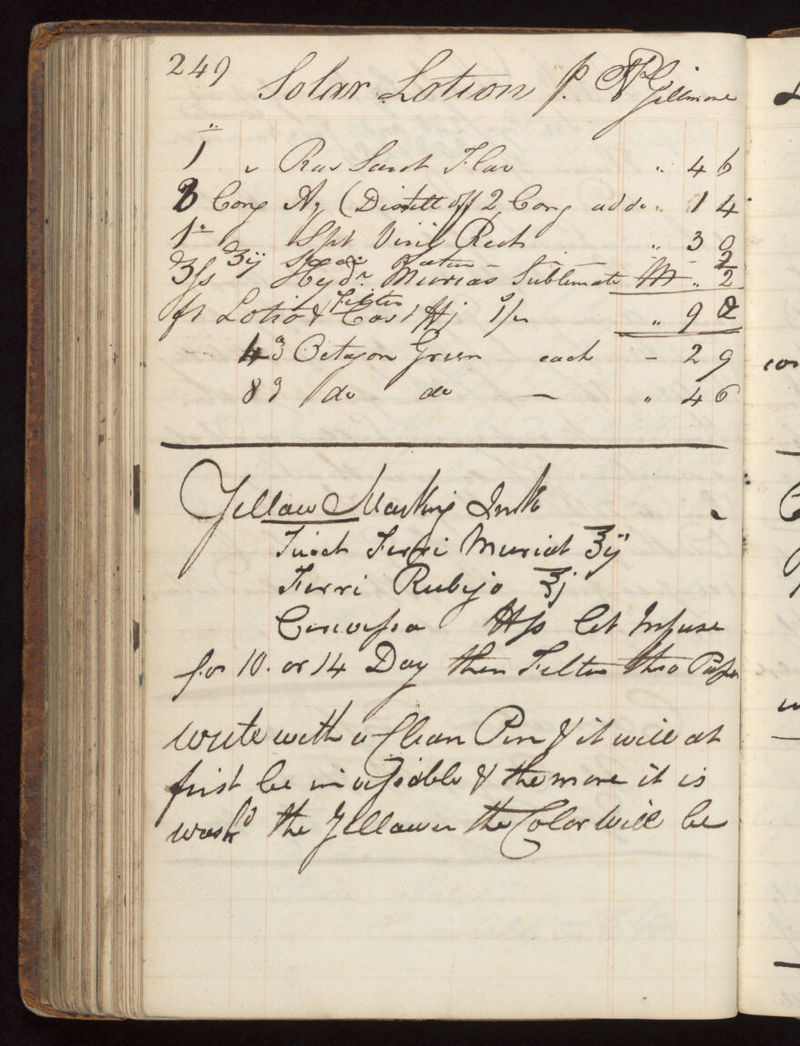 249 Solar Lotion p. Gillmore
1 " Ras Sant Flav " 4 6
3 Cong Aq (Distill off 2 Cong add " 1 4
1 " Spt Vini Rect " 3 0
ʒij 2
ʒſs Hydr Murias Sublimate " 2
Filter
ft Lotio & Cost 1/ " 9 2
4 ʒ Octagon Green each - 2 9
8 ʒ do do — " 4 6
Yellow Marking Ink
Tinct Ferri Muriat ʒij
Ferri Rubigo ʒj
let Infuse
for 10. or 14 Day then Filter thro Paper
write with a Clean Pen & it will at
first be invissoble & the more it is
washd the Yellower the Color will be